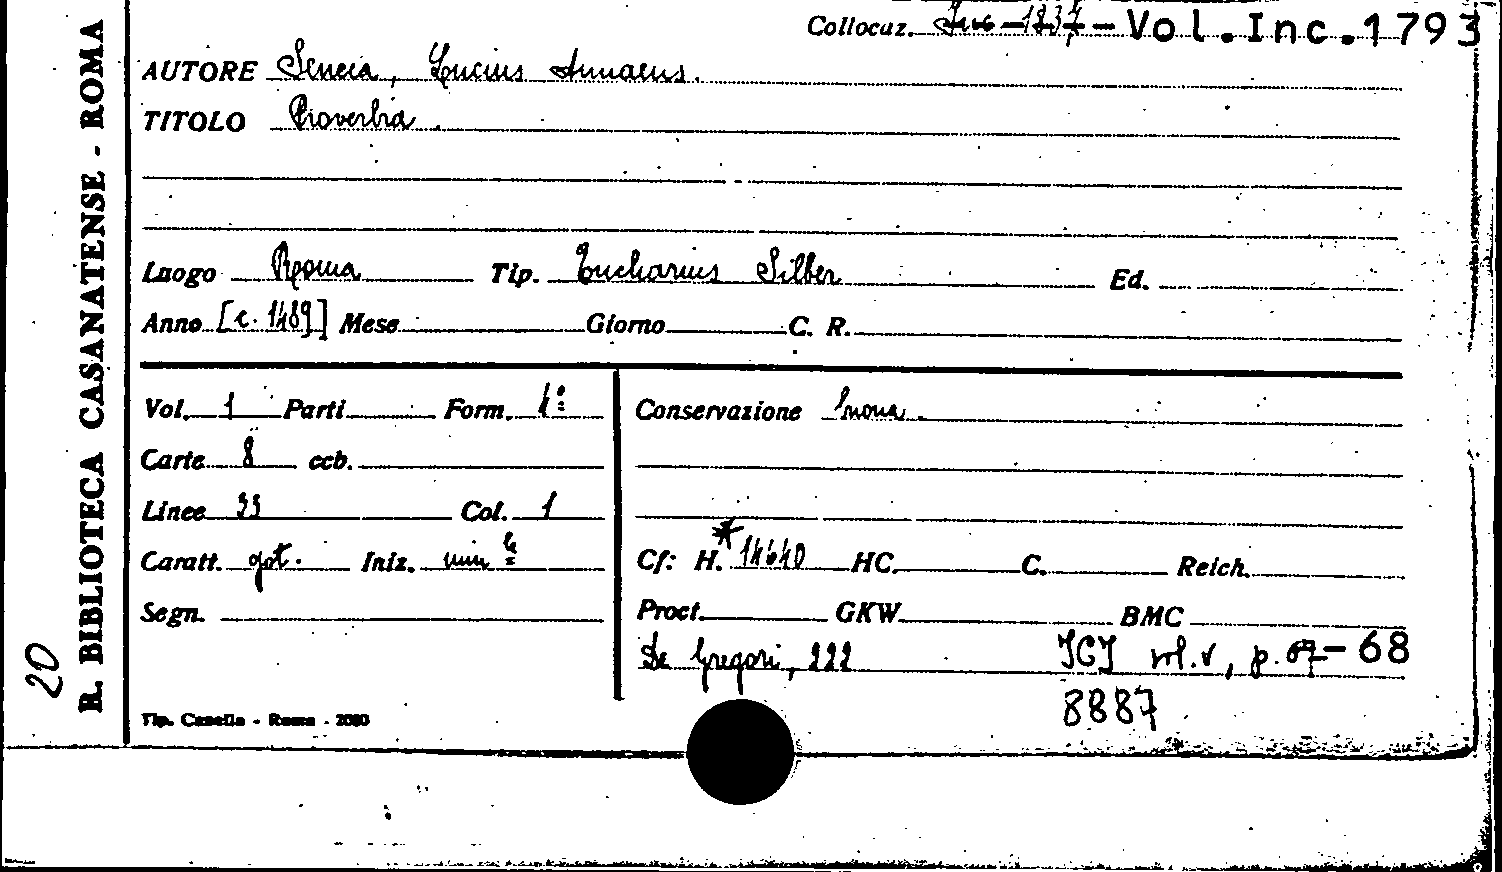 Collocaz. Inc 1237 - Vol.Inc.1793
AUTORE Seneca, Lucius Annaeus.
TITOLO Proverbia.
Luogo Roma Tip. Eucharius Silber Ed.
Anno [c. 1489] Mese Giorno C. R.
Vol. 1 Parti Form. 4º
Carte 8 ccb.
Linee 33 Col. 1
Caratt. got. Iniz. min
Segn.
Conservazione buona.
Cf: H. *14640 HC. C. Reich.
Proct. GKW. BMC
De Gregori, 222 IGI vol.V, p. 67-68
8887
Tip. Casella - Roma - 2080
R. BIBLIOTECA CASANATENSE - ROMA
20